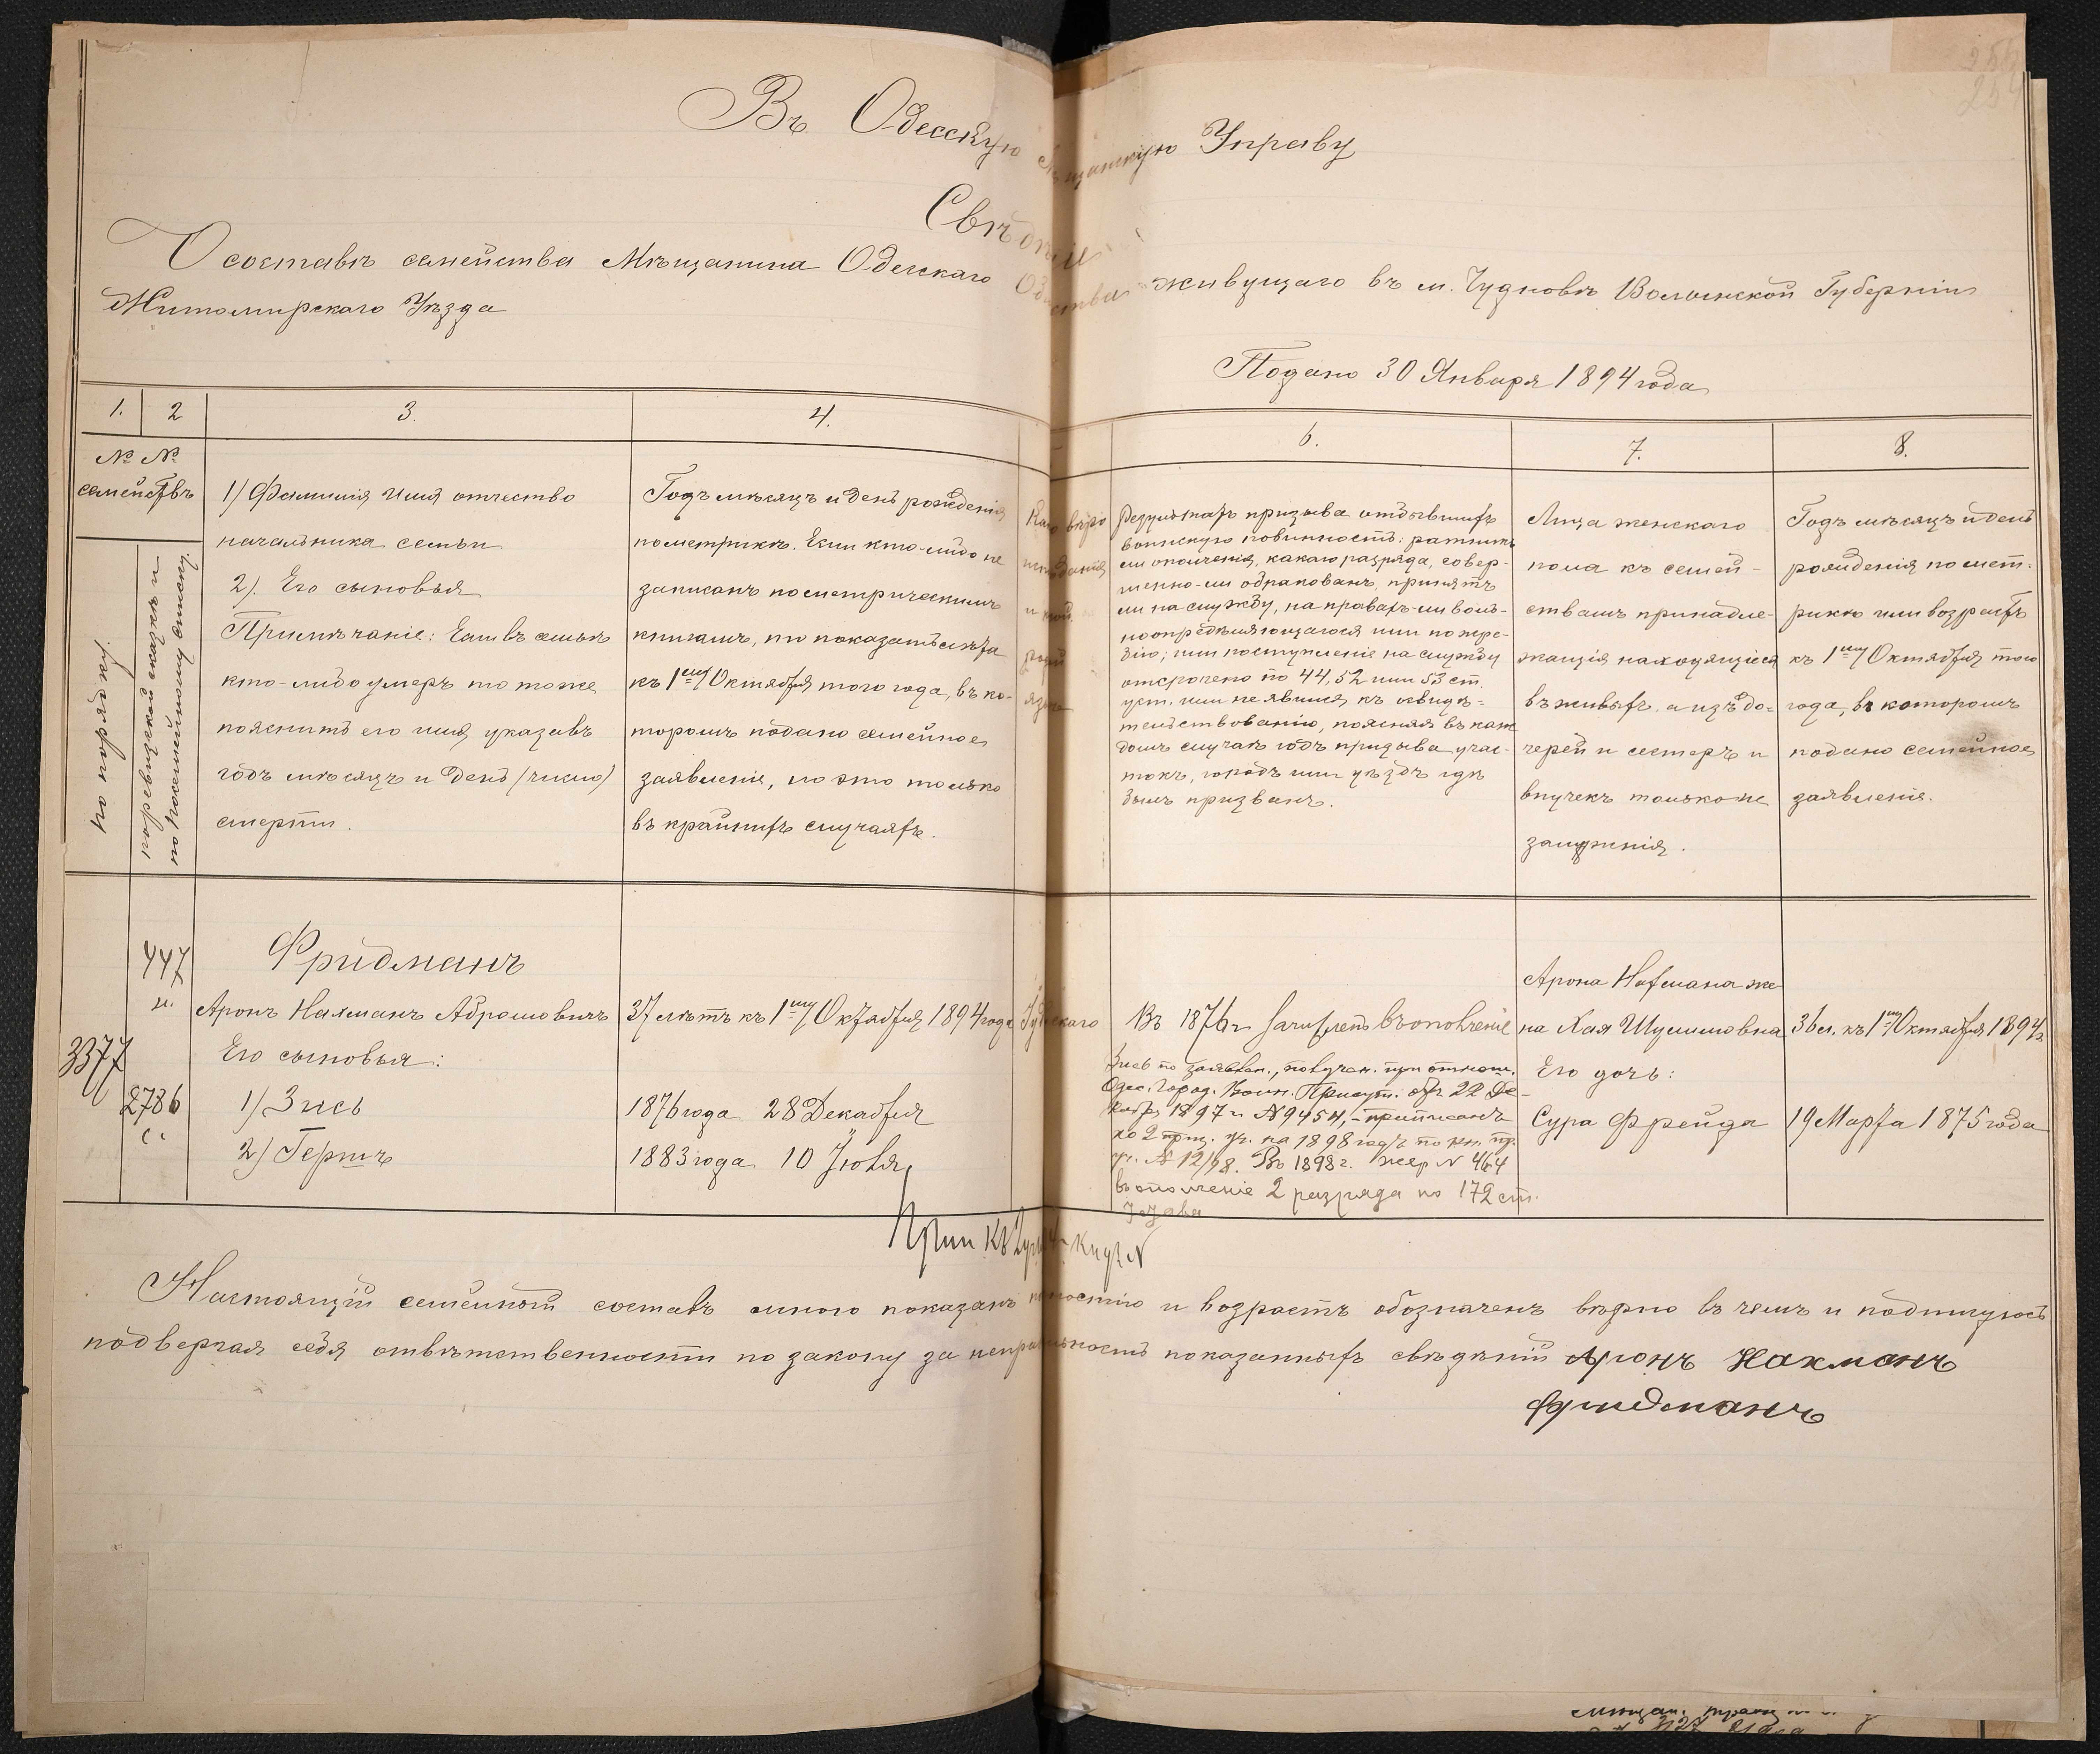 Въ Одесскую Мѣщанскую Управу
Свѣдѣніе
О составѣ семейства Мѣщанина Одесскаго Общества живущаго въ м. Чудновѣ Волынской Губерніи
Житомирскаго Уѣзда
Подано 30 Января 1894 года
1. 2 3. 4. 6. 7. 8.
№ №
семействъ
по порядку
по ревизской сказкѣ и
по посемейному списку
1) Фамилія Имя отчество
начальника семьи
2). Его сыновья
Примѣчаніе: Если въ семьѣ
кто-либо умеръ то тоже
пояснить его имя, указавъ
годъ мѣсяцъ и день (число)
смерти.
Годъ мѣсяцъ и день рожденія
по метрикѣ. Если кто-либо не
записанъ по метрическимъ
книгамъ, то показать лѣта
къ 1му Октября того года, въ ко-
торомъ подано семейное
заявленіе, но это только
въ крайнихъ случаяхъ.
Результатъ призыва отбывшихъ
воинскую повинность: ратникъ
ли ополченія, какаго разряда, совер-
шенно-ли обракованъ, принятъ
ли на службу, на правахъ-ли воль-
ноопредѣляющагося или по жре-
бію; или поступленіе на службу
отсрочено по 44, 52 или 53 ст.
уст. или не явился къ освидѣ-
тельствованію, поясняя въ каж
домъ случаѣ годъ призыва, учас-
токъ, городъ или уѣздъ гдѣ
былъ призванъ.
Лица женскаго
пола къ семей-
ствамъ принадле-
жащія находящіеся
въ живыхъ, а изъ до-
черей и сестеръ и
внучекъ только не
замужнія.
Годъ мѣсяцъ и день
рожденія по мет-
рикѣ или возрастъ
къ 1му Октября того
года, въ которомъ
подано семейное
заявленіе.
447
м.
3377
2786
с.
Фридманъ
Аронъ Нахманъ Абрамовичъ
Его сыновья:
1) Зись
2) Гершъ
37 лѣтъ къ 1му Октября 1894 года
1876 года 28 Декабря
1883 года 10 Іюля
Іудейскаго
Въ 1876 г зачисленъ въ ополченіе
Зись по заявлен., получен. при отнош.
Одес. Город. Воин. Присут. отъ 22 Де-
кабря 1897 г №9454, - приписанъ
ко 2 приз. уч. на 1898 годъ по кн. пр.
уч. № 12/98. Въ 1898 г. жер № 464
въ ополченіе 2 разряда по 172 ст.
Устава
Арона Нахмана же-
на Хая Шулимовна
Его дочь:
Сура Фрейда
36 л. къ 1му Октября 1894 г.
19 Марта 1875 года
Прип къ 2 уч
Настоящій семейный составъ мною показанъ полностію и возрастъ обозначенъ вѣрно въ чемъ и подпишусь
подвергая себя отвѣтственности по закону за неправильность показанныхъ свѣдѣній Аронъ Нахманъ
Фридманъ